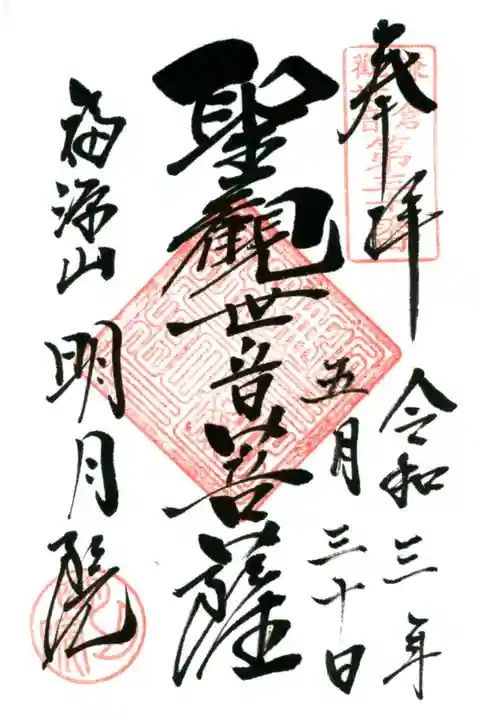 奉拝
令和三年
五月三十日
聖觀世音菩薩
福源山
明月院